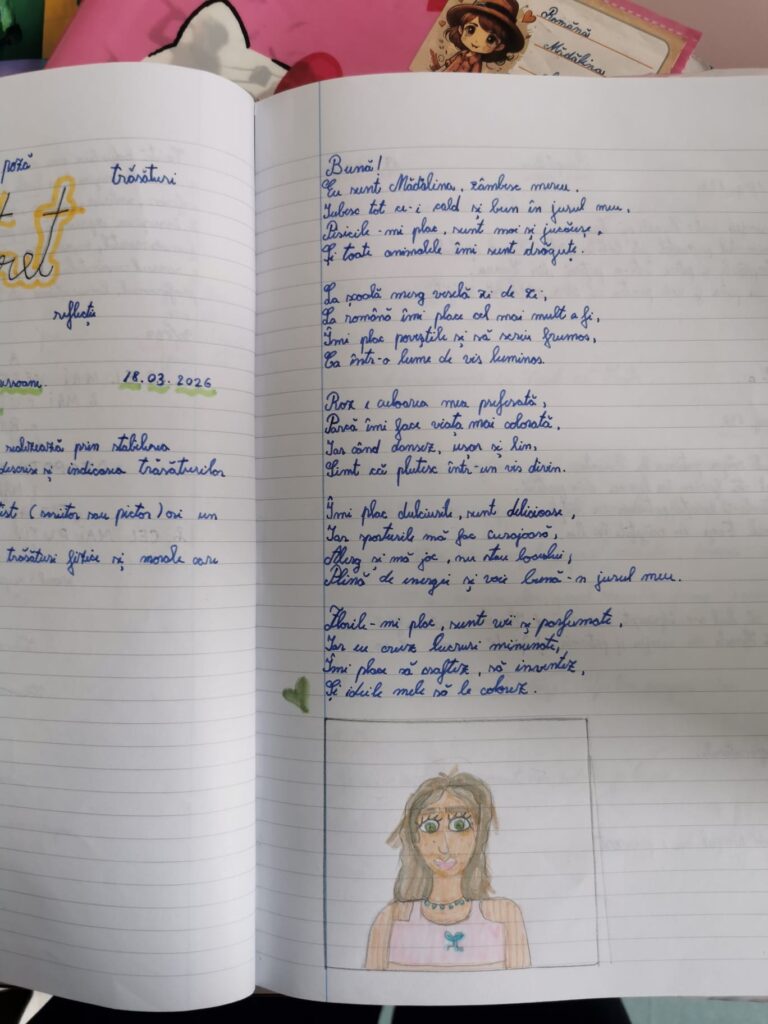 Română
Mădălina
poză
trăsături
ret
reflecție
18.03.2026
realizează prin stabilirea
descrise și indicarea trăsăturilor
(scriitor sau pictor) ori un
trăsături fizice și morale care
Bună!
Eu sunt Mădălina, zâmbesc mereu.
Iubesc tot ce-i cald și bun în jurul meu,
Pisicile-mi plac, sunt moi și jucăușe,
Și toate animalele îmi sunt drăguțe.
La școală merg veselă zi de zi,
La română îmi place cel mai mult a fi,
Îmi plac poveștile și să scriu frumos,
Ca într-o lume de vis luminos.
Roz e culoarea mea preferată,
Parcă îmi face viața mai colorată,
Iar când dansez, ușor și lin,
Simt că plutesc într-un vis divin.
Îmi plac dulciurile, sunt delicioase,
Iar sporturile mă fac curajoasă,
Alerg și mă joc, nu stau locului,
Plină de energie și voie bună-n jurul meu.
Florile-mi plac, sunt vii și parfumate,
Iar eu creez lucruri minunate,
Îmi place să craftez, să inventez,
Și ideile mele să le colorez.